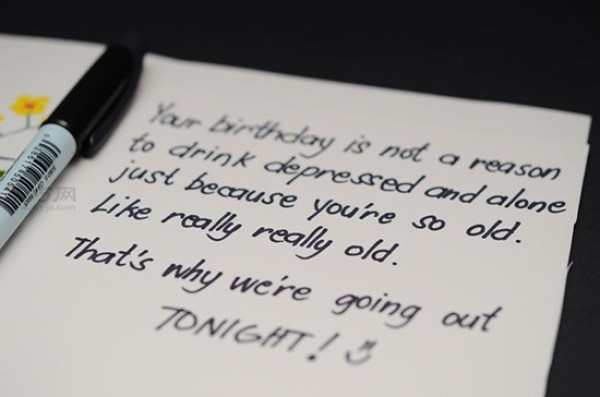 Your birthday is not a reason
to drink depressed and alone
just because you're so old.
Like really really old.
That's why we're going out
TONIGHT!